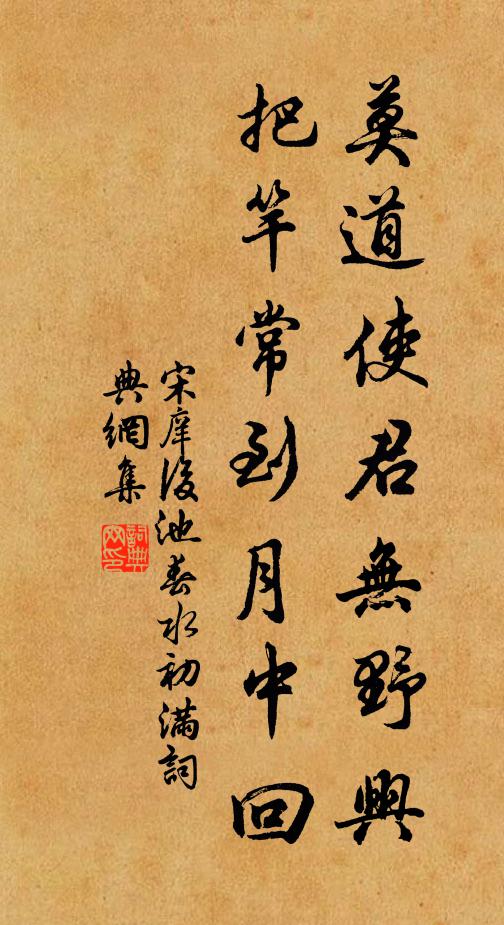 莫道使君無野興
把竿常到月中回
宋庠後池春水初滿詞
典網集
詞典網印